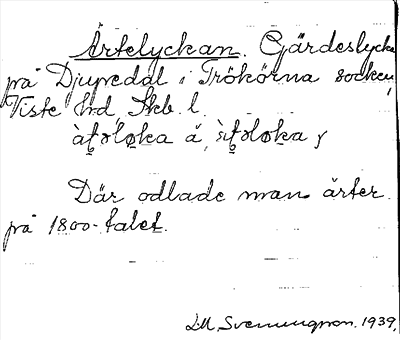 Ärtelyckan. Gärdeslycka
på Djupedal i Trökörna socken,
Viste hd, Skb. l.
Där odlade man ärter
på 1800-talet.
1939.